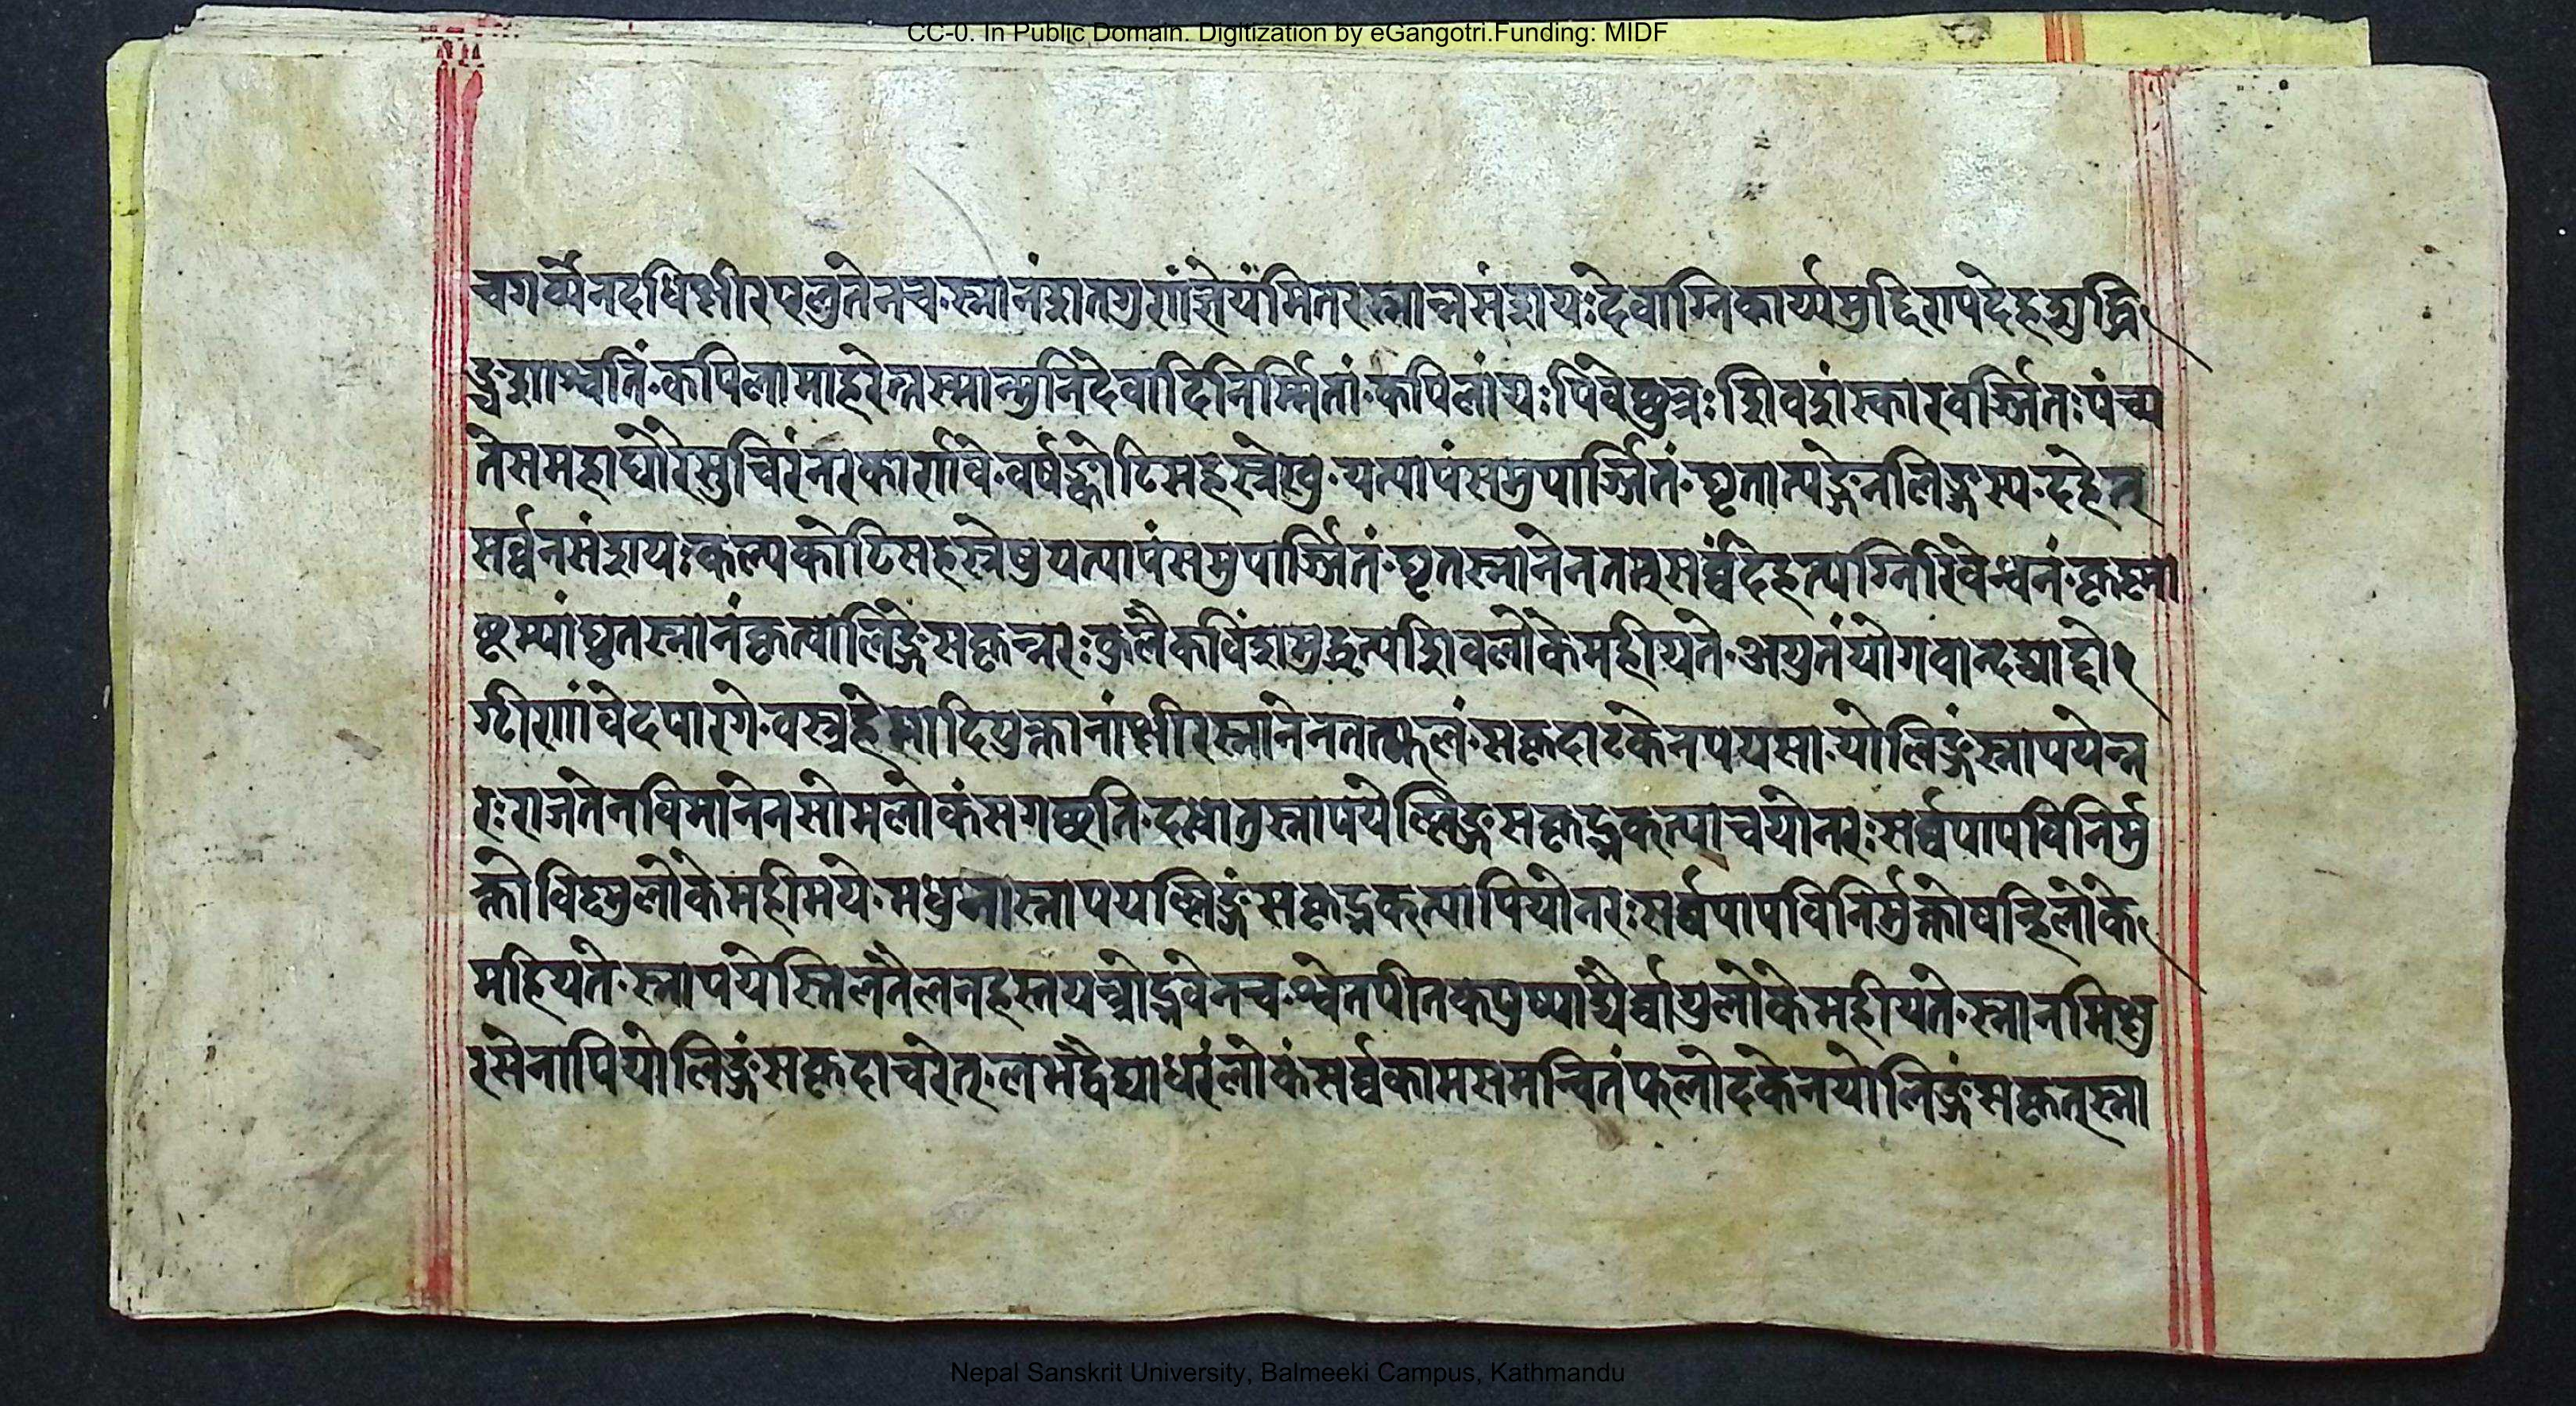 CC-0. In Public Domain. Digitization by eGangotri.Funding: MIDF
चगर्व्येनदधिक्षीरप्लुतेनच॰स्नानंशतगुणंज्ञेयंमितरस्नान्नसंशयः देवाग्निकार्य्यमुद्दिश्यपदेहशुद्धि
कपिलामाहरेत्तस्मान्मुनिदेवादिनिर्म्मितां॰कपिलांयःपिवेच्छुद्रःशिवशंस्कारवर्ज्जितःपंच्य
तेसमहाघोरेसुचिरंनरकार्णवे॰वर्षकोटिसहस्रेषु॰यत्पापंसमुपार्ज्जितं॰घृताभ्यङ्गेनलिङ्गस्य॰दहेत्
सर्व्वनसंशयःकल्पकोटिसहस्रेषुयत्पापंसमुपार्ज्जितं॰घृतस्नानेनतत्सर्व्वंदहत्यग्निरिवेन्धनं॰कृष्णा
ष्टम्यांघृतस्नानंकृत्वालिङ्गेसकृन्नरः कुलैकविंशमुद्धृत्यशिवलोकेमहीयते॰अयुतंयोगवान्दद्याद्दो
ग्ध्रीणांवेदपारगे॰वस्त्रहेमादियुक्तानांक्षीरस्नानेनतत्फलं॰सकृदाढकेनपयसा॰योलिङ्गंस्नापयेन्न
रःराजतेनविमानेनसोमलोकंसगच्छति॰दध्नातुस्नापयेल्लिङ्गसकृद्भक्त्याचयोनरःसर्व्वपापविनिर्मु
क्तोविष्णुलोकेमहीमये॰मधुनास्नापयल्लिङ्गंसकृद्भक्त्यापियोनरःसर्व्वपापविनिर्मुक्तोवह्निलोके
महियते॰स्नापयेस्तिलतैलनहस्तयन्त्रोद्भवेनच॰श्वेतपीतकपुष्पाद्यैर्व्वायुलोकेमहीयते॰स्नानमिक्षु
रसेनापियोलिङ्गंसकृदाचरेत्॰लभेद्वैद्याधरंलोकंसर्व्वकामसमन्वितंफलोदकेनयोलिङ्गंसकृत्स्ना
Nepal Sanskrit University, Balmeeki Campus, Kathmandu